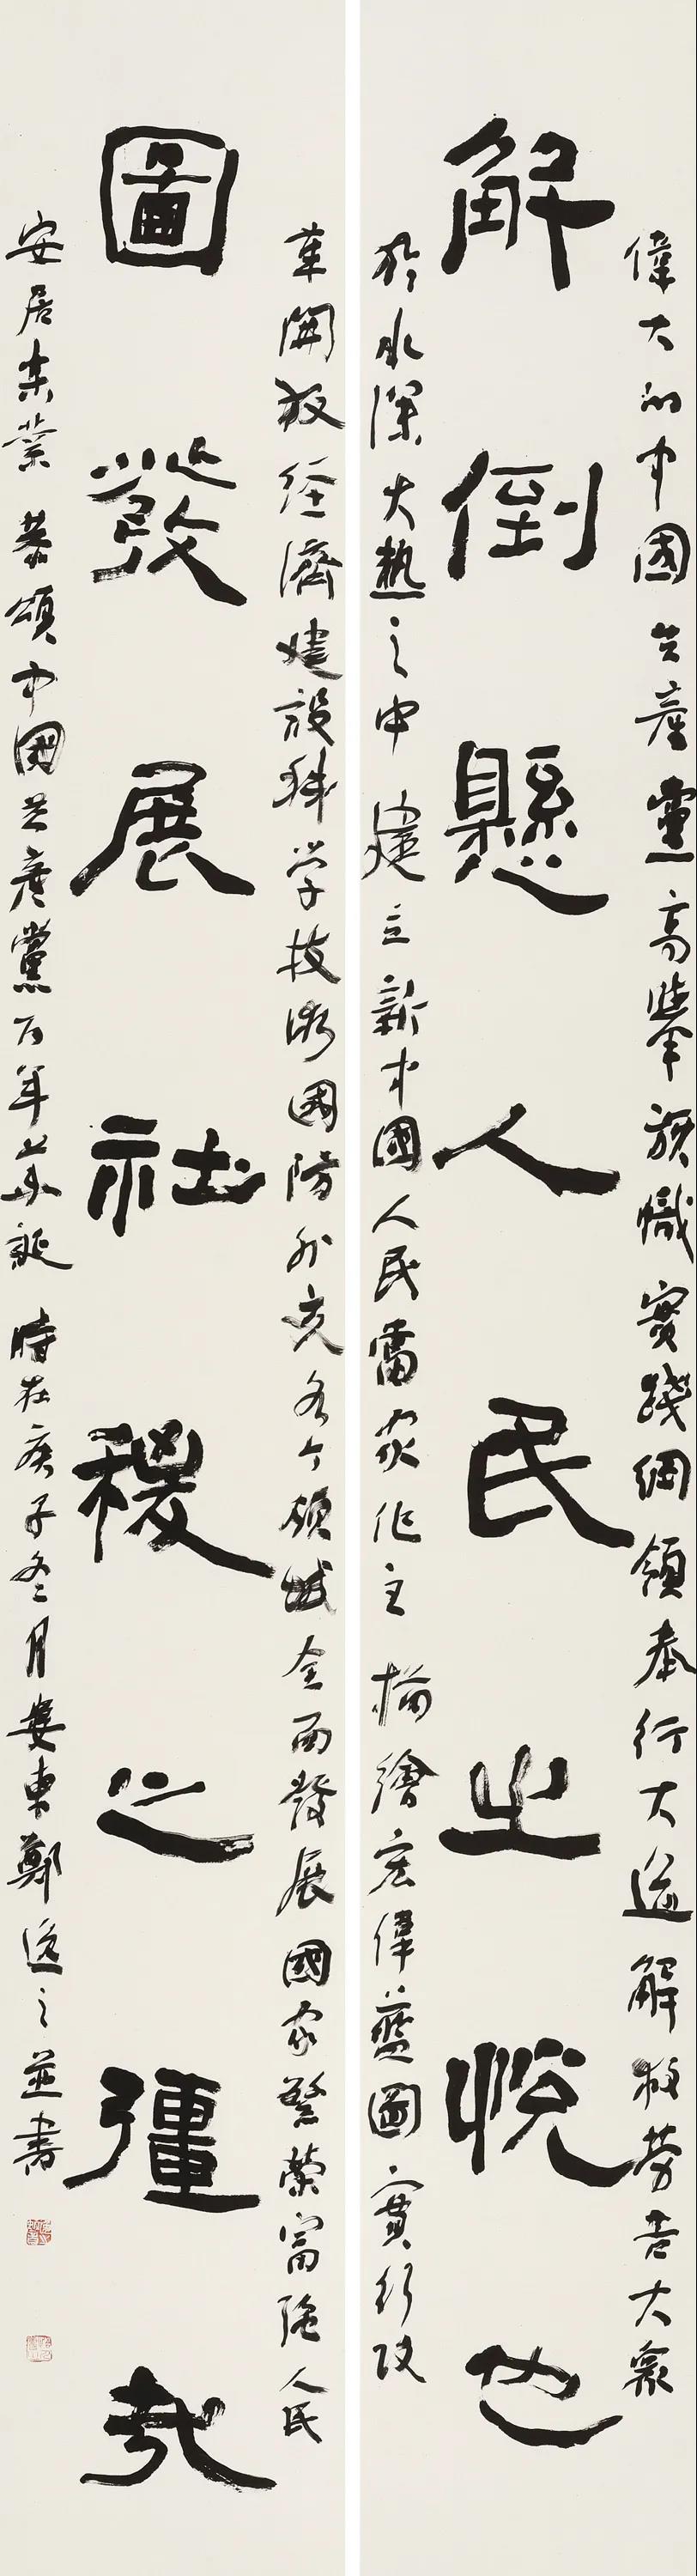 偉大的中國共產黨高舉旗幟實踐綱領奉行大道解救勞苦大衆
解倒懸人民之悅也
於水深火熱之中建立新中國人民當家作主描繪宏偉藍圖實行改
革開放經濟建設科学技術國防外交各个領域全面發展國家繁榮富強人民
圖發展社稷之彊哉
安居樂業恭頌中國共產黨百年華誕時在庚子冬月婁東鄭之並書